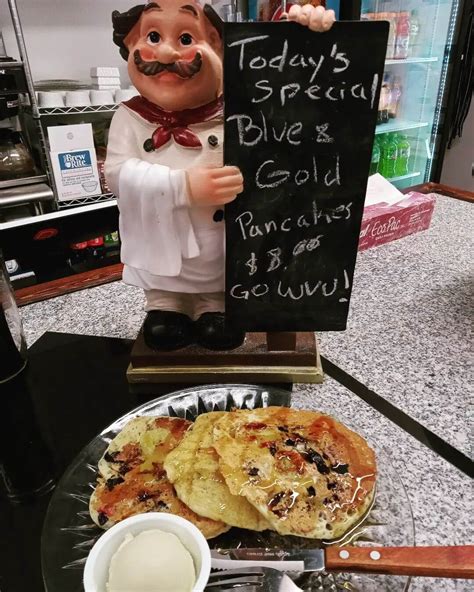 Today's
Special
Blue &
Gold
Pancakes
$8.00
GO WVU!
Brew
Rite
EcosPac